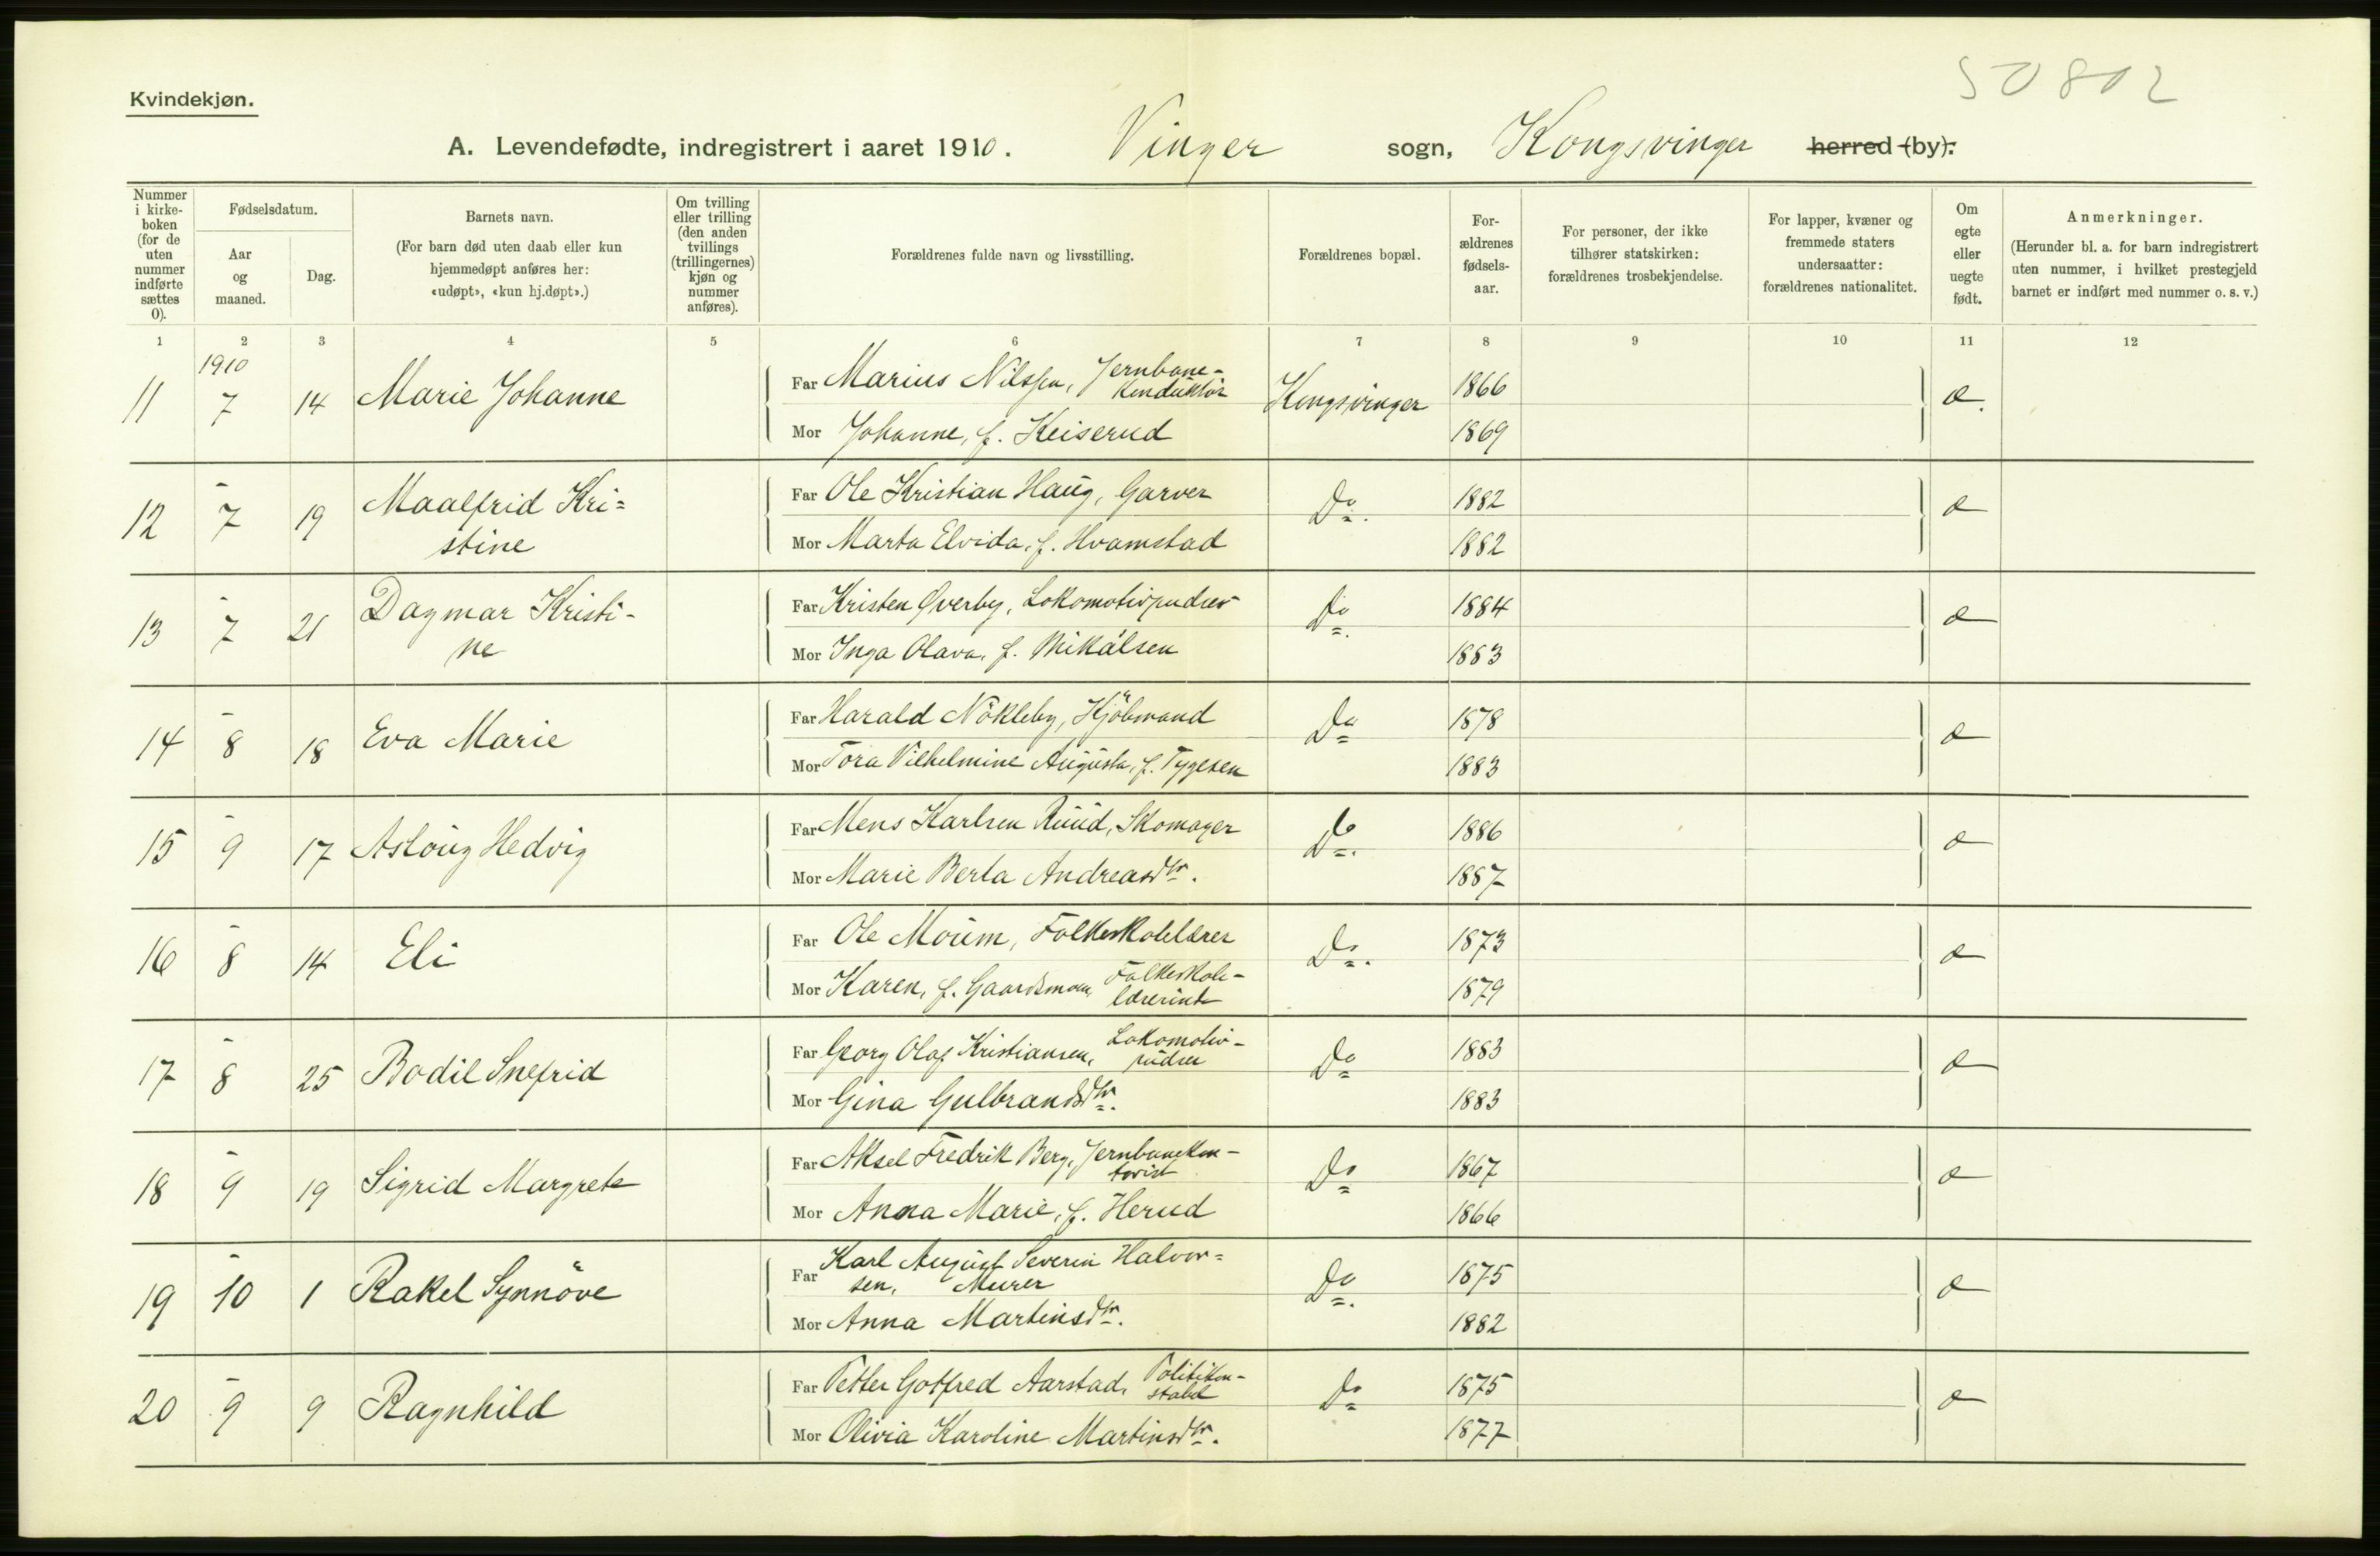 50802
Kvindekjøn.
A. Levendefødte, indregistrert i aaret 1910. Vinger sogn, Kongsvinger herred (by).
Nummer i kirkeboken (for de uten nummer indførte sættes 0).
Fødselsdatum.
Aar og maaned.
Dag.
Barnets navn.
(For barn død uten daab eller kun hjemmedøpt anføres her: «udøpt», «kun hj.døpt».)
Om tvilling eller trilling (den anden tvillings (trillingernes) kjøn og nummer anføres).
Forældrenes fulde navn og livsstilling.
Forældrenes bopæl.
For-ældrenes fødsels-aar.
For personer, der ikke tilhører statskirken: forældrenes trosbekjendelse.
For lapper, kvæner og fremmede staters undersaatter: forældrenes nationalitet.
Om egte eller uegte født.
Anmerkninger.
(Herunder bl. a. for barn indregistrert uten nummer, i hvilket prestegjeld barnet er indført med nummer o. s. v.)
1 2 3 4 5 6 7 8 9 10 11 12
1910
11 7 14 Marie Johanne Far Marius Nilssen, Jernbane-konduktør Kongsvinger 1866 æ.
Mor Johanne, f. Keiserud 1869
12 - 7 19 Maalfrid Kri=stine Far Ole Kristian Haug, Garver Do. 1882 æ
Mor Marta Elvida, f. Hvamstad 1882
13 - 7 21 Dagmar Kristi-ne Far Kristen Øverby, Lokomotivpudser Do. 1884 æ
Mor Inga Olava, f. Mikalsen 1883
14 - 8 18 Eva Marie Far Harald Nökleby, Kjöbmand Do 1878 æ
Mor Tora Vilhelmine Augusta, f. Tygesen 1883
15 - 9 17 Aslaug Hedvig Far Mens Karlsen Ruud, Skomager Do. 1886 æ
Mor Marie Berta Andreasdtr. 1887
16 - 8 14 Eli Far Ole Moum, Folkeskolelærer Do. 1873 æ
Mor Karen, f. Gaardsmoen, Folkeskole-lærerinde 1879
17 - 8 25 Bodil Snefrid Far Georg Olaf Kristiansen, Lokomotiv-pudser Do 1883 æ
Mor Gina Gulbrandsdtr. 1883
18 - 9 19 Sigrid Margrete Far Aksel Fredrik Berg, Jernbanekon-torist Do 1867 æ
Mor Anna Marie, f. Herud 1866
19 - 10 1 Rakel Synnöve Far Karl August Severin Halvor=sen, Murer Do. 1875 æ
Mor Anna Martinsdtr. 1882
20 - 9 9 Ragnhild Far Petter Gotfred Aarstad, Politikon-stabel Do 1875 æ
Mor Olivia Karoline Martinsdtr. 1877